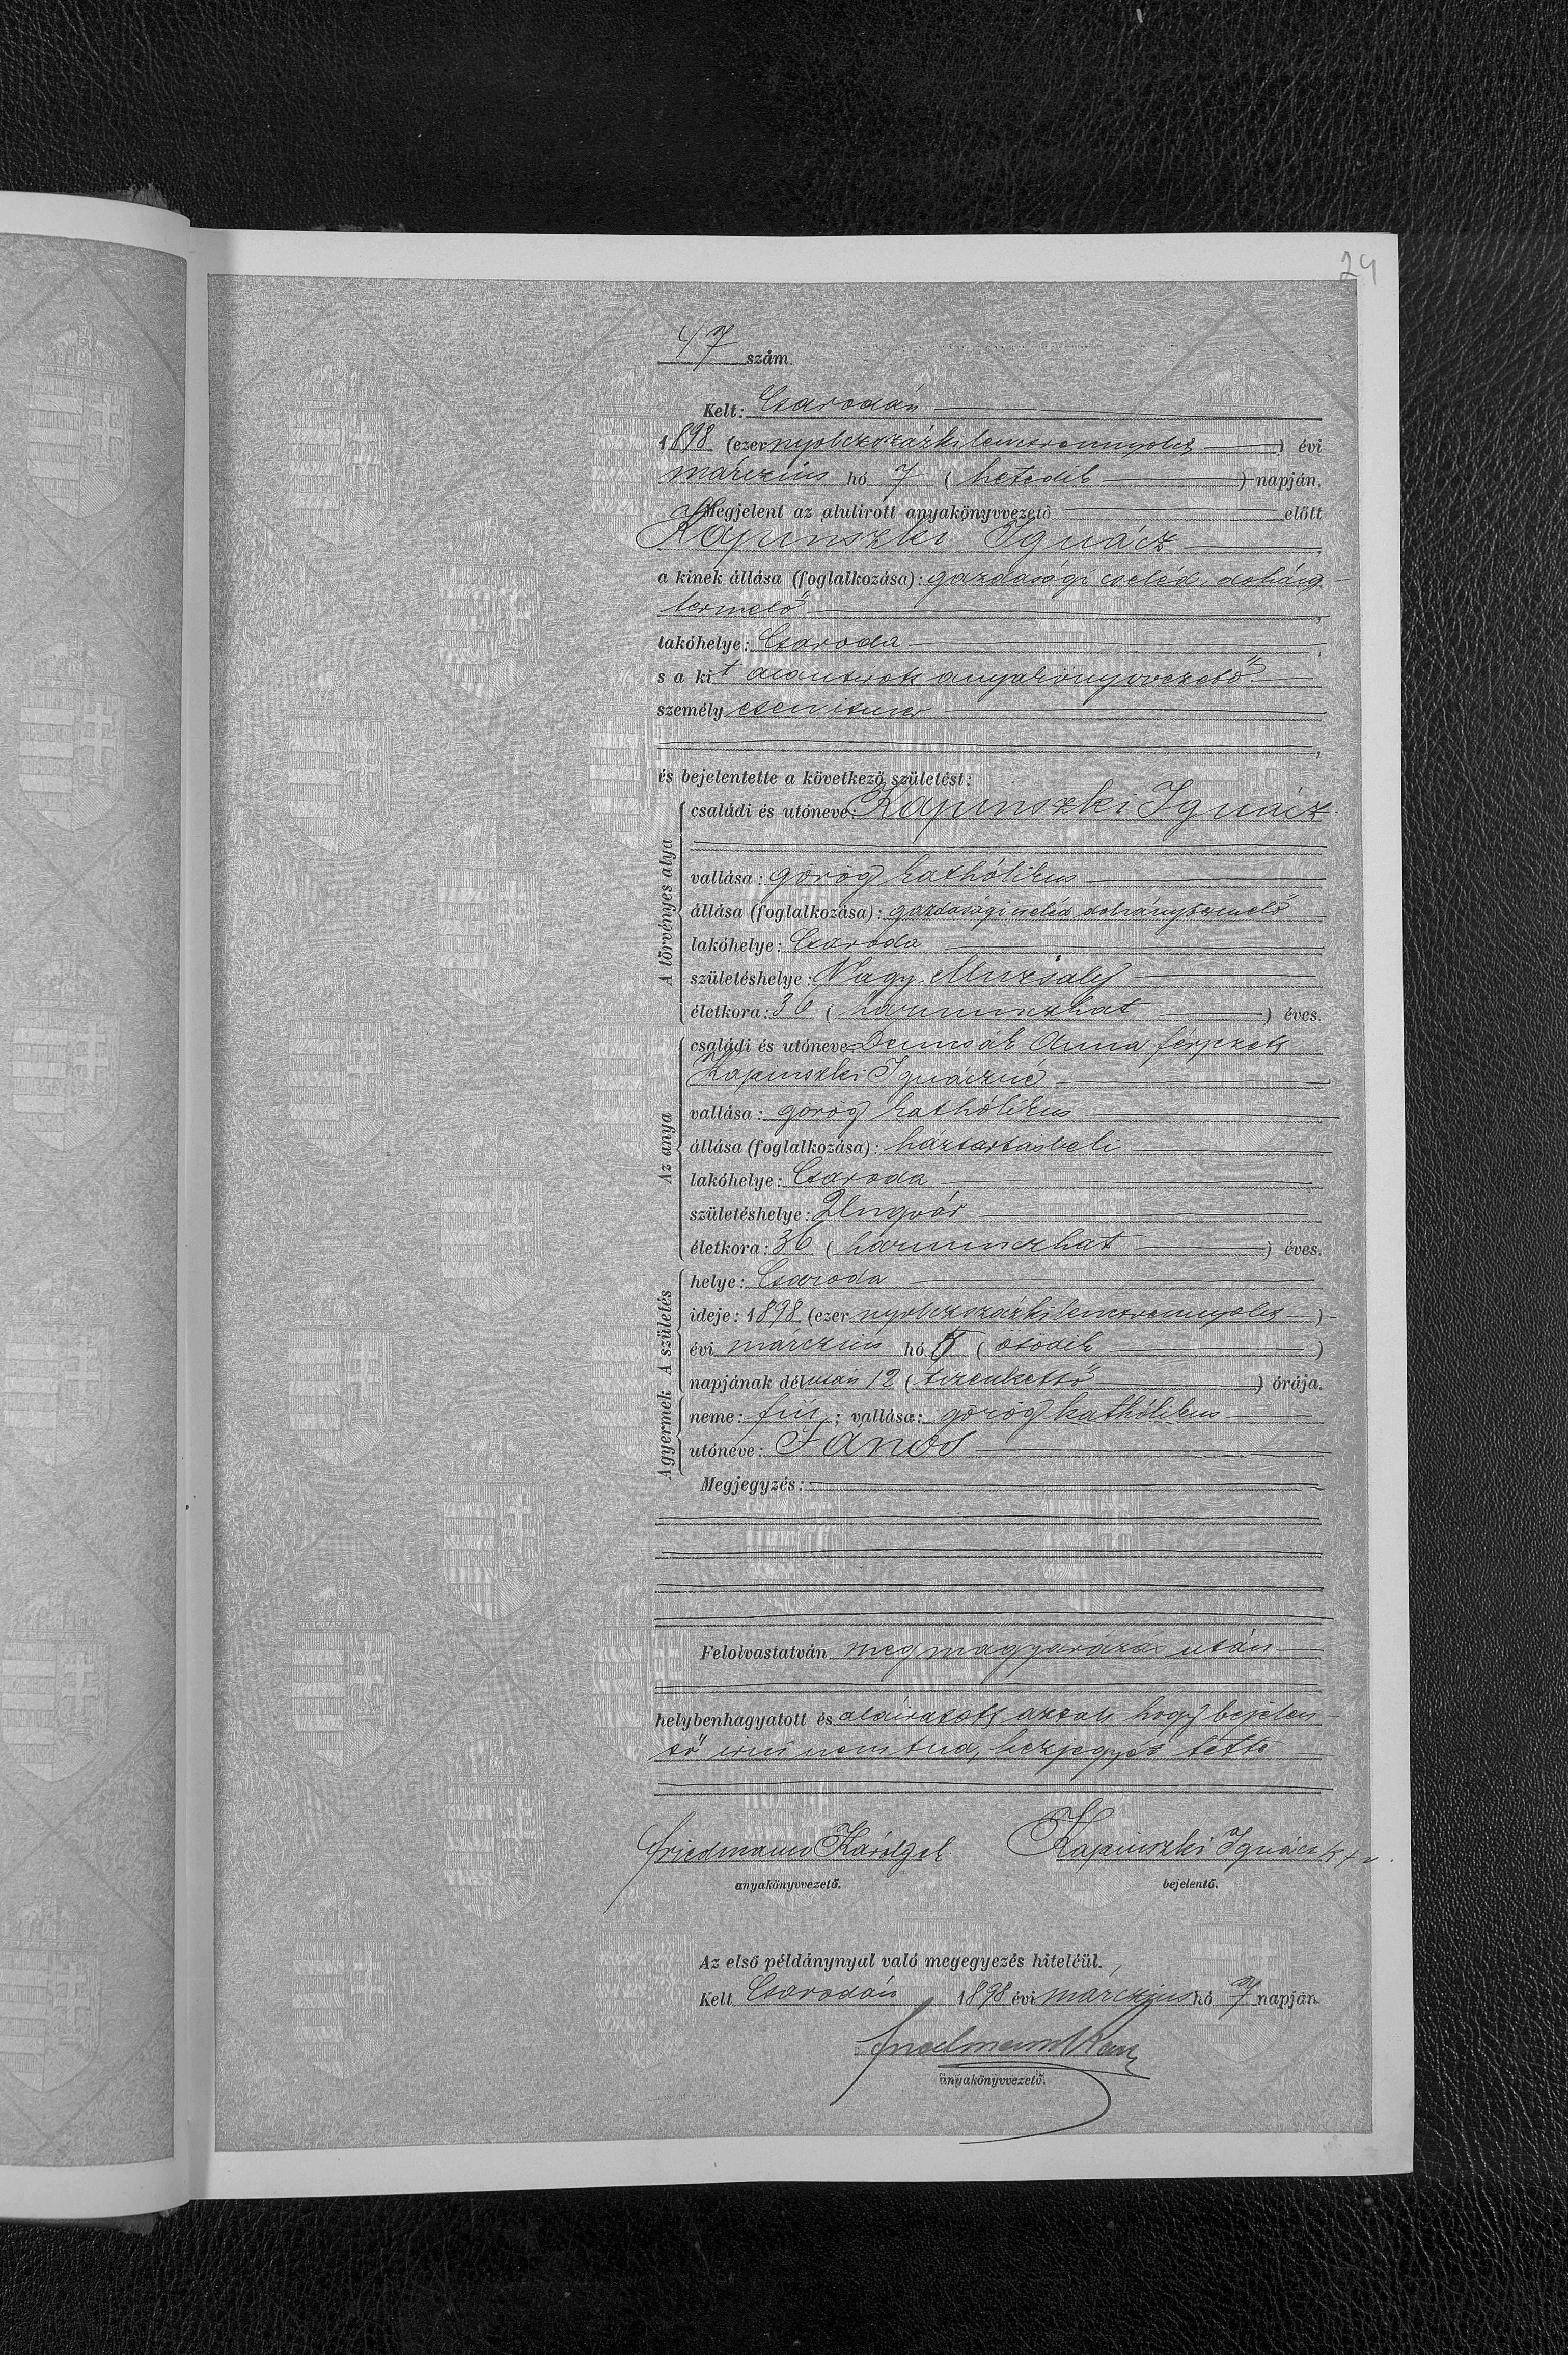 24
47 szám.
Kelt: Csarodán
1898 (ezer nyolczszázkilenczvennyolcz) évi
márczius hó 7 (hetedik) napján.
Megjelent az alulirott anyakönyvvezető előtt
Kapinszki Ignácz,
a kinek állása (foglalkozása): gazdasági cseléd, dohány-
termelő,
lakóhelye: Csaroda,
s a kit alantirott anyakönyvvezető
személyesen ismer,
és bejelentette a következő születést:
A törvényes atya
családi és utóneve: Kapinszki Ignácz
vallása: görög kathólikus
állása (foglalkozása): gazdasági cseléd dohánytermelő
lakóhelye: Csaroda
születéshelye: Nagy-Muzsaly
életkora: 36 (harminczhat) éves.
Az anya
családi és utóneve: Anna férjezett
Kapinszki Ignáczné
vallása: görög kathólikus
állása (foglalkozása): háztartásbeli
lakóhelye: Csaroda
születéshelye: Ungvár
életkora: 36 (harminczhat) éves.
A születés
helye: Csaroda
ideje: 1898 (ezer nyolczszázkilenczvennyolcz)
évi márczius hó 5 (ötödik)
napjának délután 12 (tizenkettő) órája.
A gyermek
neme: fiú; vallása: görög kathólikus
utóneve: János
Megjegyzés:
Felolvastatván megmagyarázás után
helybenhagyatott és aláiratott azzal, hogy bejelen-
tő irni nem tud, kézjegyét tette
Friedmann Károly Kapinszki Ignácz
anyakönyvvezető. bejelentő.
Az első példánynyal való megegyezés hiteléül.
Kelt Csarodán 1898 évi márczius hó 7 napján
Friedmann
anyakönyvvezető.